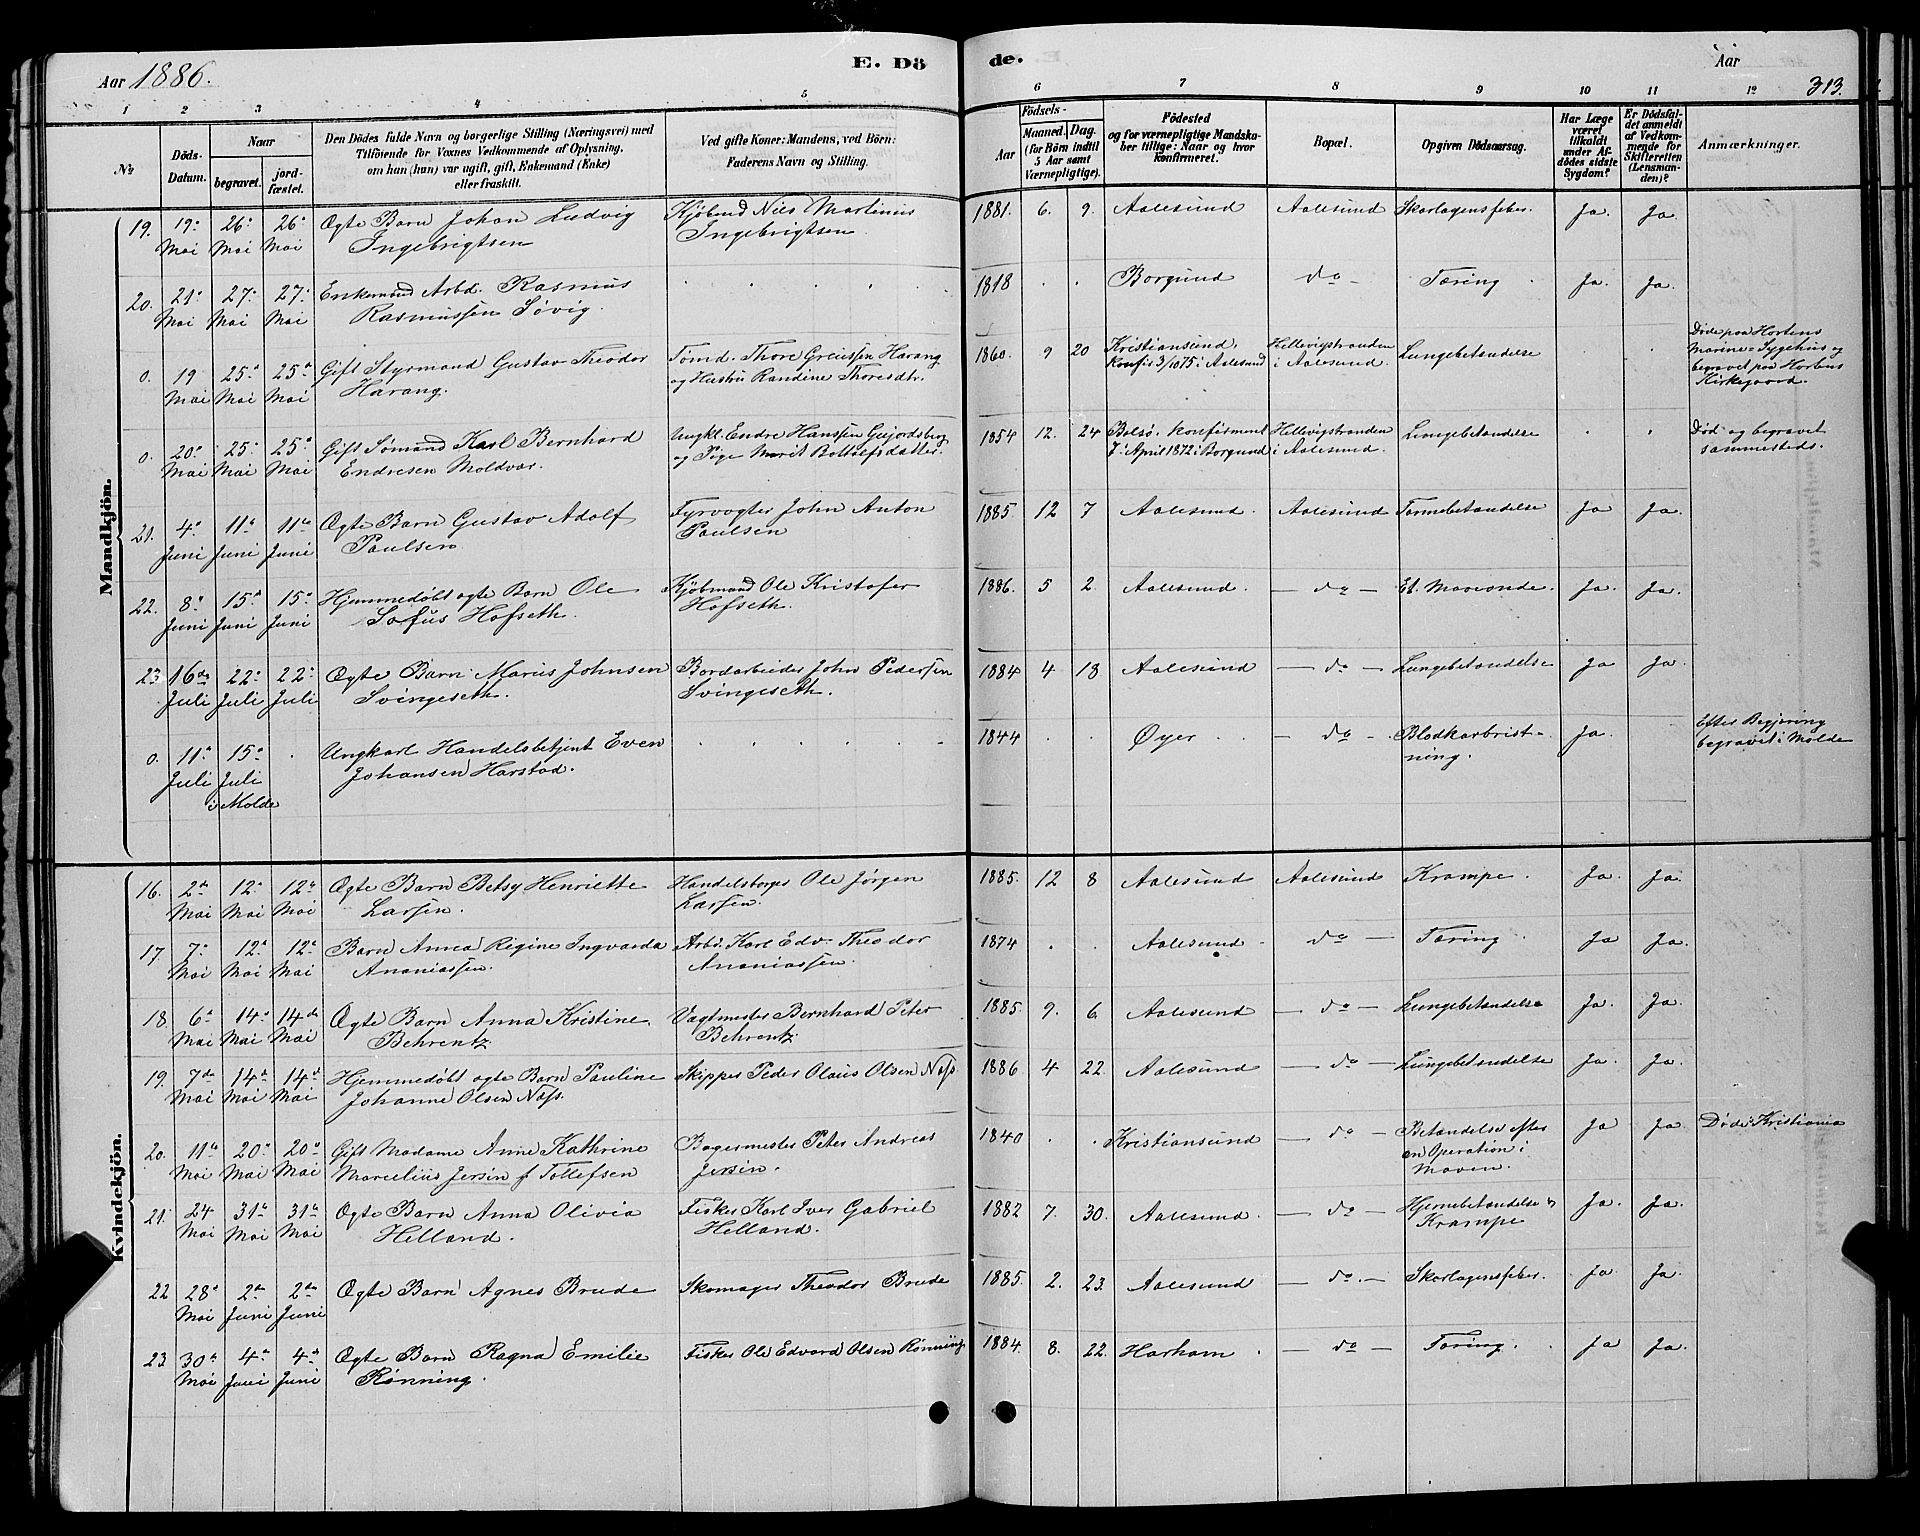 Aar 1886. E. Dö de. Aar 313.
1 2 3 4 5 6 7 8 9 10 11 12
No
Döds-Datum.
Naar
begravet.
jordfæstet.
Den Dödes fulde Navn og borgerlige Stilling (Næringsvei) med
Tilföiende for Voxnes Vedkommende af Oplysning,
om han (hun) var ugift, gift, Enkemand (Enke)
eller fraskilt.
Ved gifte Koner: Mandens, ved Börn:
Faderens Navn og Stilling.
Födsels-
Aar
Maaned. Dag.
(for Börn indtil
5 Aar samt
Værnepligtige).
Födested
og for værnepligtige Mandska-
ber tillige: Naar og hvor
konfirmeret.
Bopæl.
Opgiven Dödsaarsag.
Har Læge
været
tilkaldt
under Af-
dödes sidste
Sygdom?
Er Dödsfal-
det anmeldt
af Vedkom-
mende for
Skifteretten
(Lensman-
den)?
Anmærkninger.
Mandkjön.
19. 19. Mai 26. Mai 26. Mai Ægte Barn Johan Ludvig Kjöbmd Nils Martinus 1881. 6. 9. Aalesund Aalesund Skarlagensfeber. Ja. Ja.
Ingebrigtsen Ingebrigtsen
20. 21. Mai 27. Mai 27. Mai Enkemand Arbd. Rasmus 1818 Borgund do Tæring Ja. Ja.
Rasmussen Søvig.
0. 19 Mai 25. Mai 25. Mai Gift Styrmand Gustav Theodor Tømd. Thore Greiussen Harang 1860. 9 20 Kristiansund, Hellevigstranden Lungebetændelse Døde paa Hortens
Harang. og Hustru Randine Thoresdtr. Konfir 3/10 75 i Aalesund i Aalesund. Marine-Sygehus og
begravet paa Hortens
Kirkegaard.
0. 20. Mai 25. Mai 25. Mai Gift Sømand Karl Bernhard Ungkl. Endre Hanssen 1854 12. 24 Bolsø. Konfirmeret Hellevigstranden Lungebetændelse Død og begravet
Endresen Moldvær. og Pige Marit Bottolfsdatter. 7. April 1872 i Borgund i Aalesund. sammesteds.
21. 4. Juni 11. Juni 11. Juni Ægte Barn Gustav Adolf Fyrvogter John Anton 1885. 12 7 Aalesund. Aalesund Tarmebetændelse Ja Ja.
Paulsen Paulsen
22. 8. Juni 15. Juni 15. Juni Hjemmedøbt ægte Barn Ole Kjöbmand Ole Kristofer 1886. 5 2. Aalesund. — do — Et. Maveonde. Ja. Ja.
Sofus Hofseth. Hofseth.
23. 16de Juli 22. Juli 22. Juli Ægte Barn Marius Johnsen Bordarbeider John Pedersen 1884 4 18 Aalesund — do — Lungebetændelse Ja Ja.
Svingeseth. Svingeseth.
0. 11. Juli 15. Juli i Molde Ungkarl Handelsbetjent Even 1844 Øyer — do — Blodkarbrist- Ja. Efter Begjæring
Johansen Harstad. ning. begravet i Molde
Kvindekjön.
16. 2de Mai 12. Mai 12. Mai Ægte Barn Betsy Henriette Handelsborger Ole Jørgen 1885. 12 8 Aalesund Aalesund Krampe. Ja. Ja.
Larsen. Larsen.
17. 7. Mai 12. Mai 12. Mai Barn Anna Regine Ingvarda Arbd. Karl Edv. Theodor 1874 Aalesund do — Tæring Ja Ja.
Ananiassen. Ananiassen.
18. 6. Mai 14. Mai 14de Mai Ægte Barn Anna Kristine Vagtmester Bernhard Peter 1885 9. 6 Aalesund do — Lungebetændelse Ja. Ja.
Behrentz Behrentz
19. 7de Mai 14. Mai 14. Mai Hjemmedøbt ægte Barn Pauline Skipper Peder Olaus Olsen Næss 1886 4 22. Aalesund — do — Lungebetændelse Ja. Ja.
Johanne Olsen Næss.
20. 11. Mai 20. Mai 20. Mai Gift Madame Anne Kathrine Bagermester Peter Andreas 1840 Kristiansund — do — Betændelse efter Ja Ja. Døde i Kristiania
Marcelius Jersin f. Tollefsen Jersin. en Operation i
Maven.
21. 24 Mai 31. Mai 31. Mai Ægte Barn Anna Olivia Fisker Karl Iver Gabriel 1882 7. 30. Aalesund. — do — Hjernebetændelse & Ja. Ja.
Helland. Helland. Krampe
22 28. Mai 2den Juni 2den Juni Ægte Barn Agnes Brude Skomager Theodor Brude 1885. 2. 23. Aalesund — do. — Skarlagensfeber. Ja Ja.
23 30. Mai 4. Juni 4. Juni Ægte Barn Ragna Emilie Fisker Ole Edvard Olsen Rønning 1884. 8. 22. Harham — do — Tæring. Ja Ja.
Rønning.